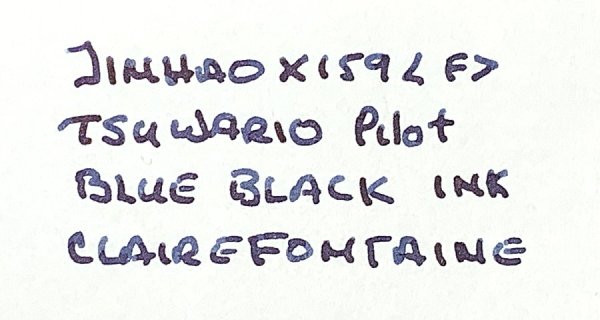 JINHAO X159 <F>
TSUWARIO Pilot
BLUE BLACK INK
CLAIREFONTAINE